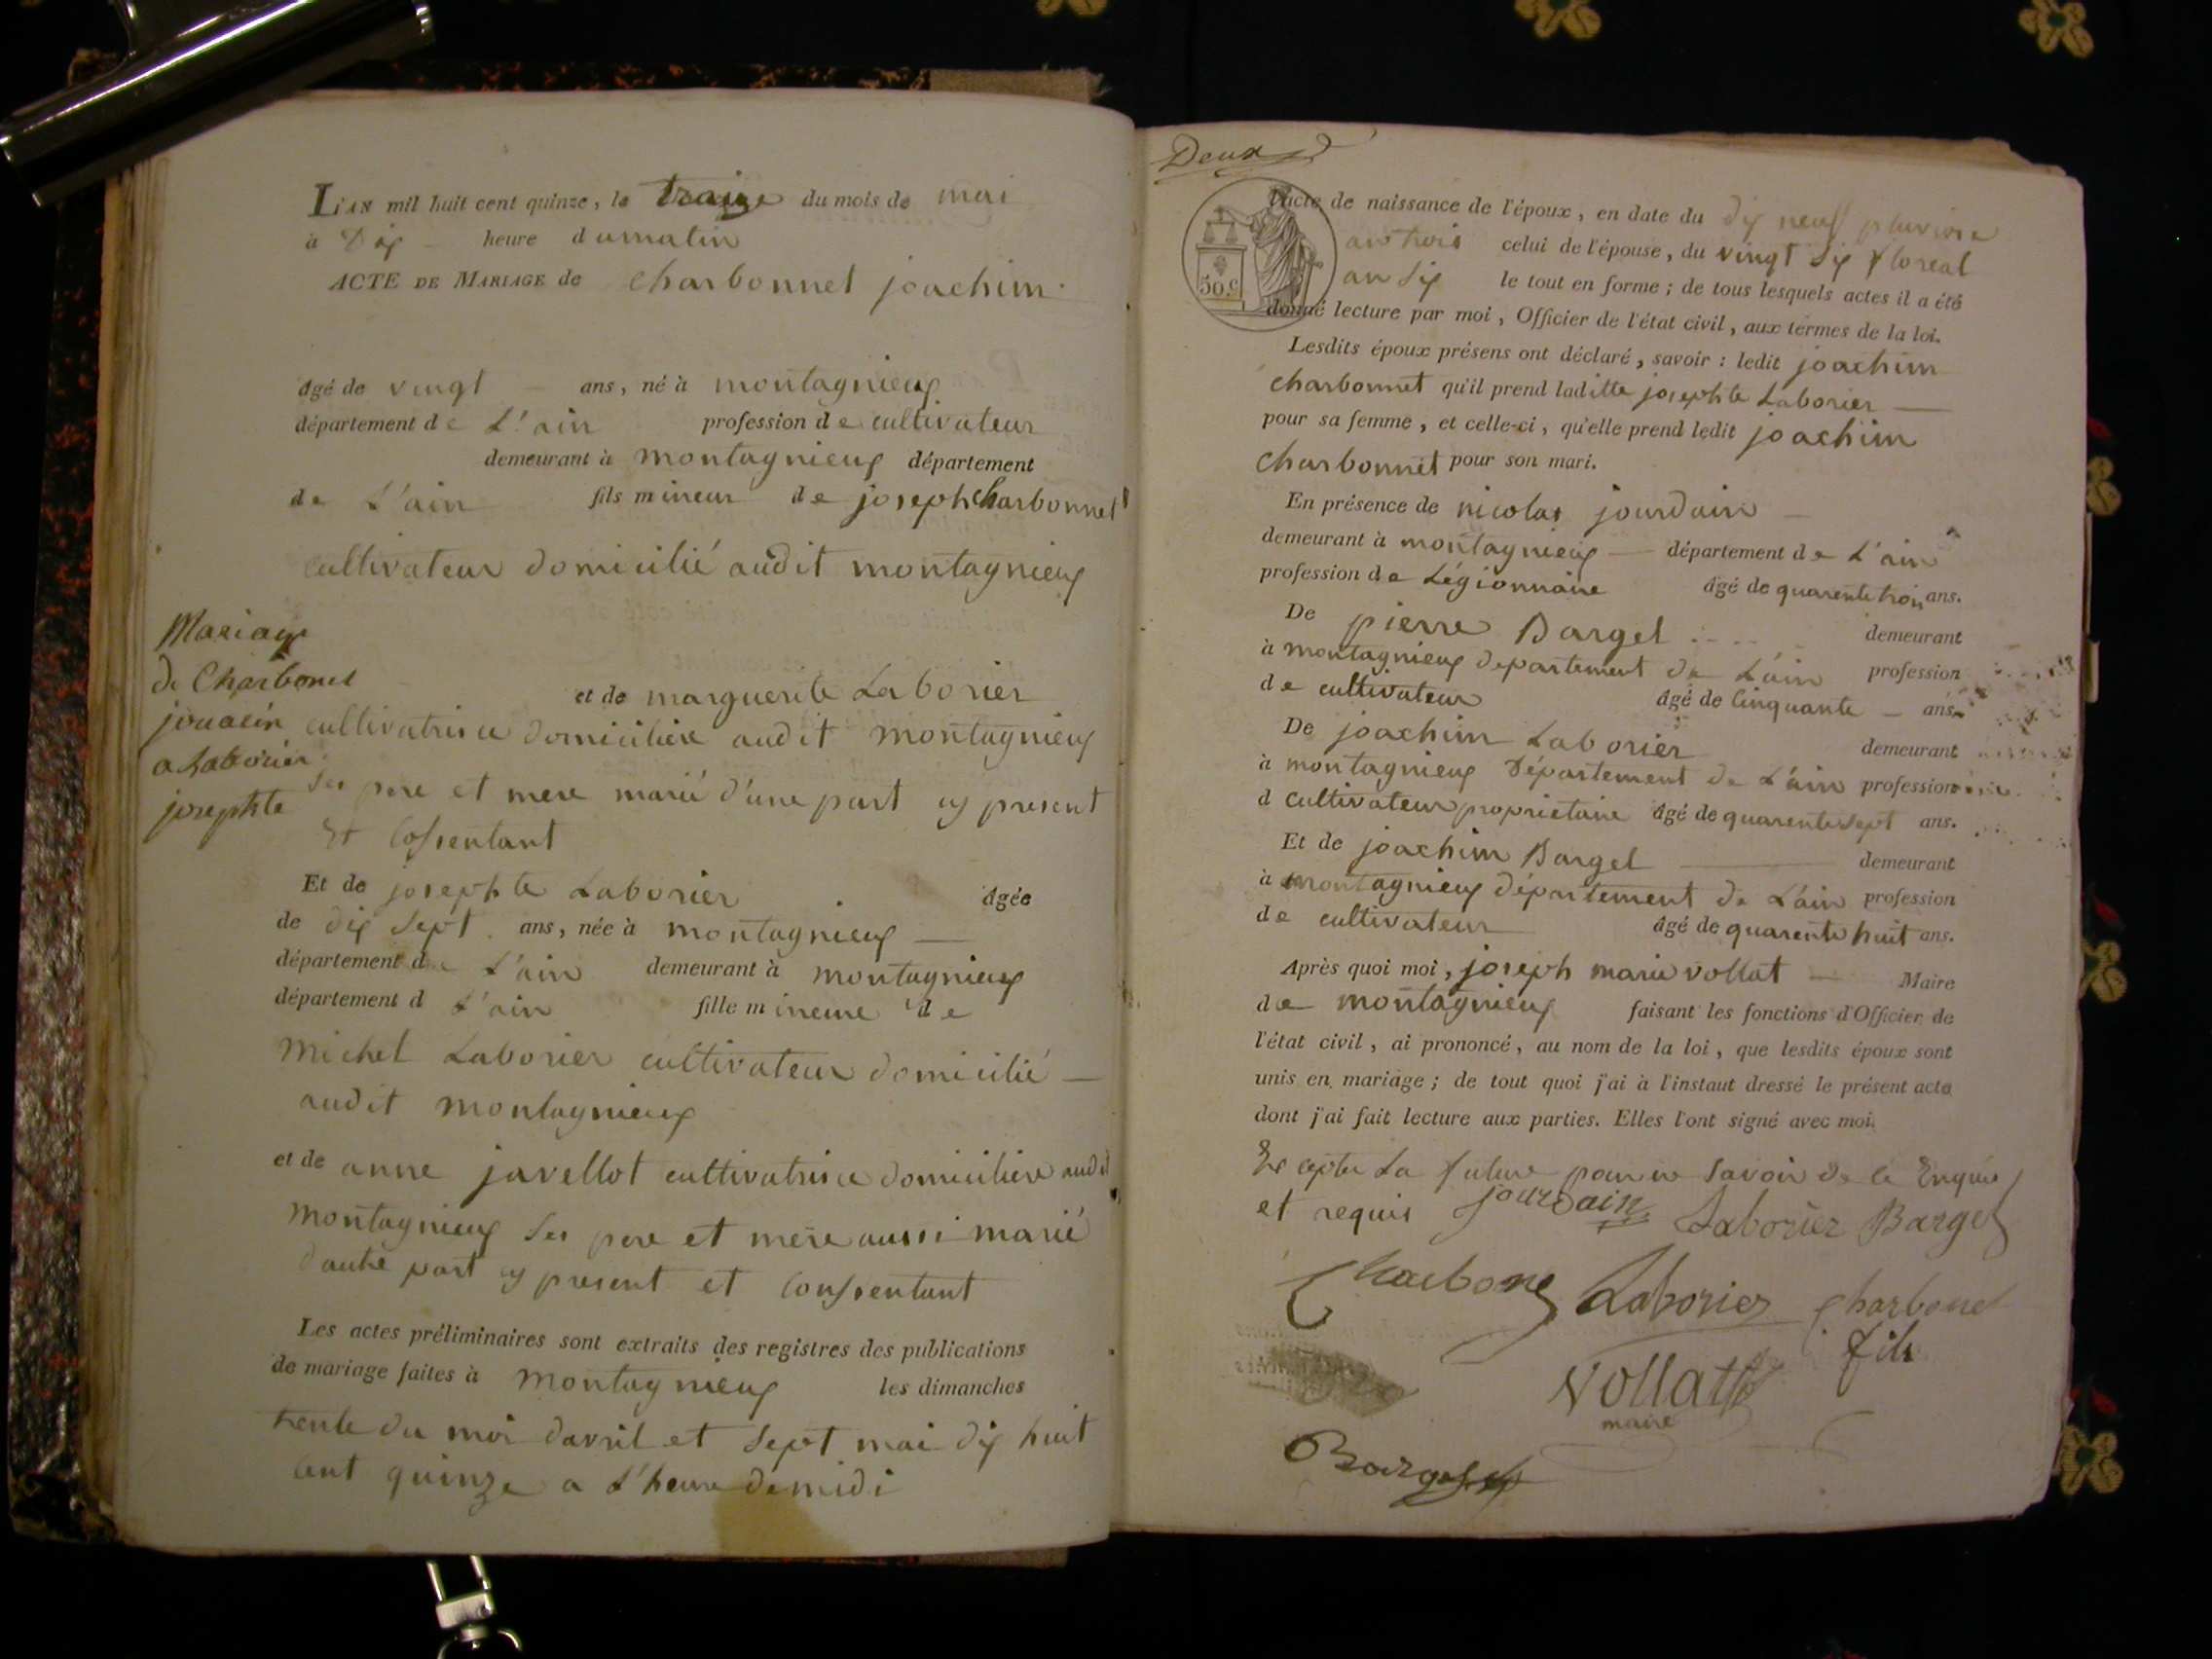 L'AN mil huit cent quinze, le traize du mois de mai
à Dix heure du matin
ACTE DE MARIAGE de charbonnet joachim
âgé de vingt — ans, né à montagnieux
département de L'ain profession de cultivateur
demeurant à montagnieux département
de L'ain fils mineur de joseph charbonnet
cultivateur domicilié audit montagnieux
Mariage
de Charbonet
jouacin
a Laborier
josephte
et de marguerite Laborier
cultivatrice domicilière audit montagnieux
ses pere et mere marié d'une part cy present
Et Consentant
Et de josephte Laborier âgée
de dix sept ans, née à montagnieux —
département de L'ain demeurant à montagnieux
département d L'ain fille mineure de
michel Laborier cultivateur domicilié —
audit montagnieux
et de anne javellot cultivatrice domicilière audit
montagnieux ses pere et mere aussi marié
d'autre part cy present et consentant
Les actes préliminaires sont extraits des registres des publications
de mariage faites à montagnieux les dimanches
trente du moi davril et sept mai dix huit
cent quinze a L'heure de midi
Deux
50.c
l'acte de naissance de l'époux, en date du dix neuf pluviose
an trois celui de l'épouse, du vingt six floreal
an six le tout en forme ; de tous lesquels actes il a été
donné lecture par moi, Officier de l'état civil, aux termes de la loi.
Lesdits époux présens ont déclaré, savoir : ledit joachim
charbonnet qu'il prend laditte josephte Laborier —
pour sa femme, et celle-ci, qu'elle prend ledit joachim
charbonnet pour son mari.
En présence de nicolas jourdain —
demeurant à montagnieux — département de L'ain
profession de Légionnaire âgé de quarente trois ans.
De pierre Bargel demeurant
à montagnieux departement de L'ain profession
de cultivateur âgé de Cinquante — ans.
De joachim Laborier demeurant
à montagnieux Département de L'ain profession
d cultivateur proprietaire âgé de quarente sept ans.
Et de joachim Bargel — demeurant
à montagnieux département de L'ain profession
de cultivateur âgé de quarente huit ans.
Après quoi moi, joseph marie vollat — Maire
de montagnieux faisant les fonctions d'Officier de
l'état civil, ai prononcé, au nom de la loi, que lesdits époux sont
unis en mariage ; de tout quoi j'ai à l'instaut dressé le présent acte
dont j'ai fait lecture aux parties. Elles l'ont signé avec moi.
Excepté La future pour ne savoir de ce Enquis
et requis jourdain Laborier Bargel
Charbone Laborier charbonet
fils
Vollat
maire
Bargel